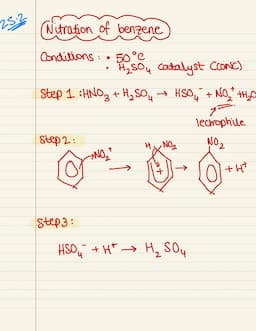 2.5.2
Nitration of benzene
Conditions: • 50°C
• H₂SO₄ catalyst (conc)
Step 1: HNO₃ + H₂SO₄ → HSO₄⁻ + NO₂⁺ + H₂O
lectrophile
Step 2:
NO₂⁺ → H NO₂ + → NO₂ + H⁺
Step 3:
HSO₄⁻ + H⁺ → H₂SO₄